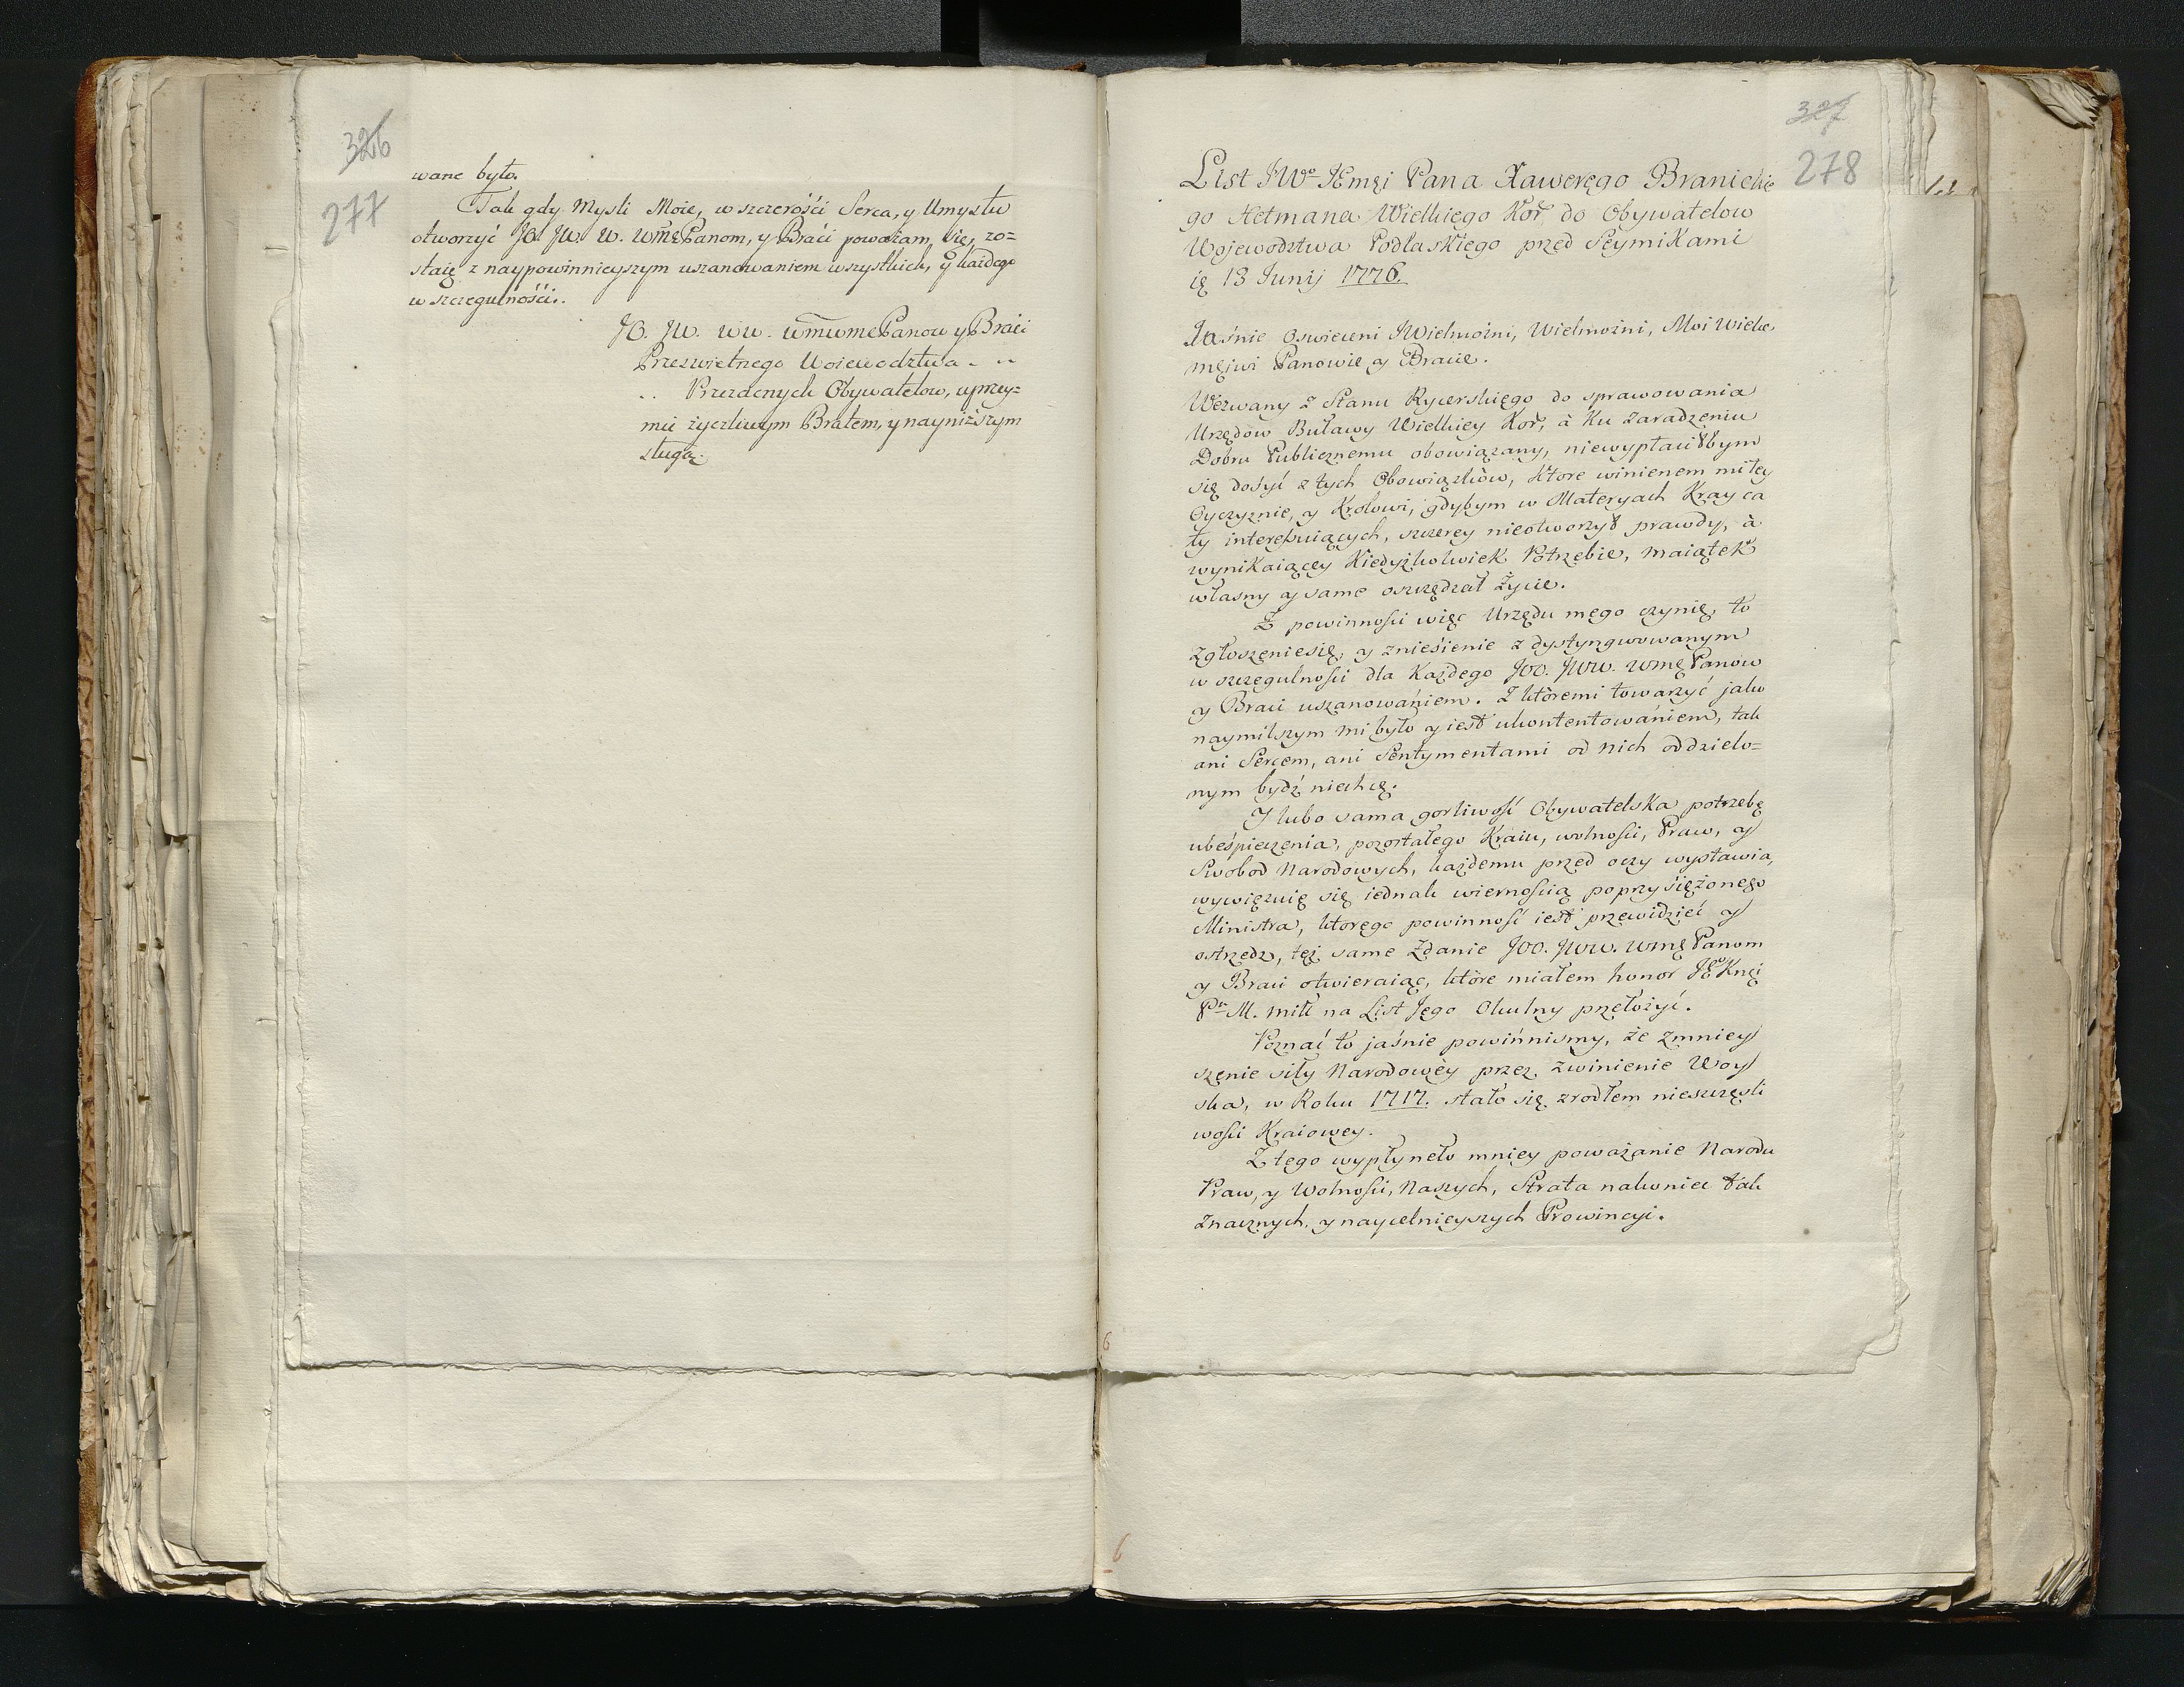 326
277
wane było.
Tak gdy Mysli Moie, w szczerości Serca, y Umysłu
otworzyć JO. JW. W. WmęPanom, y Braći poważam się, zo=
staię z naypowinnieyszym uszanowaniem wszystkich, y każdego
w szczegulności.
JO. JW. WW. WmwmęPanow y Braći
Przeswietnego Woiewodztwa - ..
.. Przezacnych Obywatelow, uprzey=
mie życzliwym Bratem, y nayniższym
sługą.
327
278
List JWo JEmęi Pana Xawerego Branickie
go Hetmana Wielkiego Kor. do Obywatelow
Wojewodztwa Podlaskiego przed Seymikami
ię 13 Junij 1776.
Jaśnie Oswieceni JWielmożni, Wielmożni, Moi Wielce,
męiwi Panowie y Bracie.
Wezwany z Stanu Rycerskiego do sprawowania
Urzędow Buławy Wielkiey Kor, à Ku Zaradzeniu
Dobru Publicznemu obowiązany, niewypłaciłbym
się dosyć z tych Obowiązków, Ktore winienem miłey
Oyczyznie, y Krolowi, gdybym w Materyach Kray ca
ły interessuiących, szczerey nieotworzył prawdy, à
wynikaiącey Kiedyżkolwiek Potrzebie, maiątek
własny y same oszczędzał Życie.
Z powinnosci więc Urzędu mego czynię to
Zgłoszenie się, y zniesienie z dystyngwowanym
w szczegulnosci dla Każdego JOO. JWW. WmęPanow
y Braci uszanowaniem. Z któremi towarzyć jako
naymilszym mi było y iest ukontentowaniem, tak
ani Sercem, ani Sentymentami od nich oddzielo=
nym bydź niechcę.
Y lubo sama gorliwość Obywatelska potrzebę
ubeśpieczenia, pozostałego Kraiu, wolnosci, Praw, y
Swobod Narodowych, każdemu przed oczy wystawia,
wywięzuię się iednak wiernoscią poprzysiężonego
Ministra, ktorego powinność iest przewidzieć y
ostrzedz, też same Zdanie JOO. JWW. WmęPanom
y Braci otwieraiąc, które miałem honor JEoKnęi
Pu M. miłł na List Jego Okulny przełożyć.
Poznać to jaśnie powińnismy, że zmniey
szenie siły Narodowèy przez zwinienie Woy
ska, w Roku 1717. stało się zrodłem nieszczęsli
wości Kraiowey.
Z tego wypłyneło mniey poważanie Narodu
Praw, y Wolnosci, Naszych, Strata nakoniec tak
Znacznych, y naycelnieyszych Prowincyi.
6
6